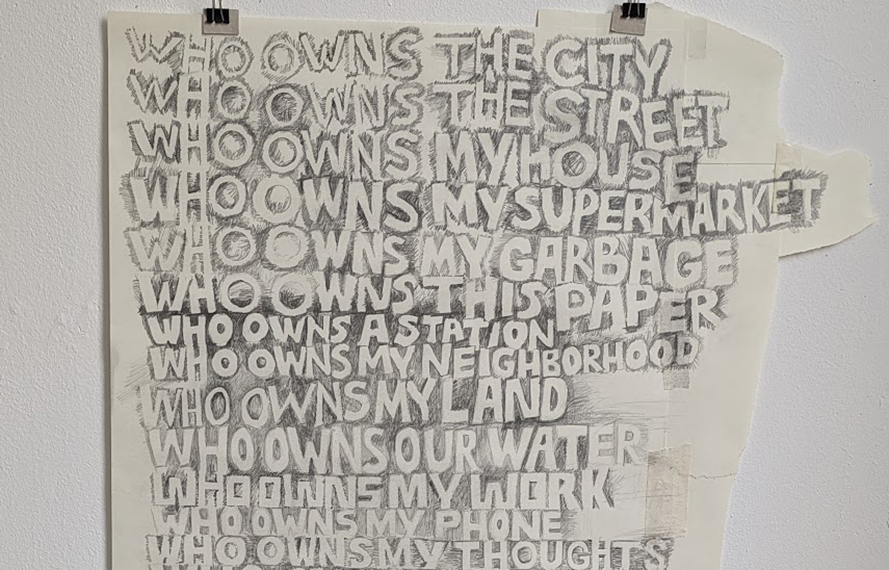 WHO OWNS THE CITY
WHO OWNS THE STREET
WHO OWNS MY HOUSE
WHO OWNS MY SUPERMARKET
WHO OWNS MY GARBAGE
WHO OWNS THIS PAPER
WHO OWNS A STATION
WHO OWNS MY NEIGHBORHOOD
WHO OWNS MY LAND
WHO OWNS OUR WATER
WHO OWNS MY WORK
WHO OWNS MY PHONE
WHO OWNS MY THOUGHTS